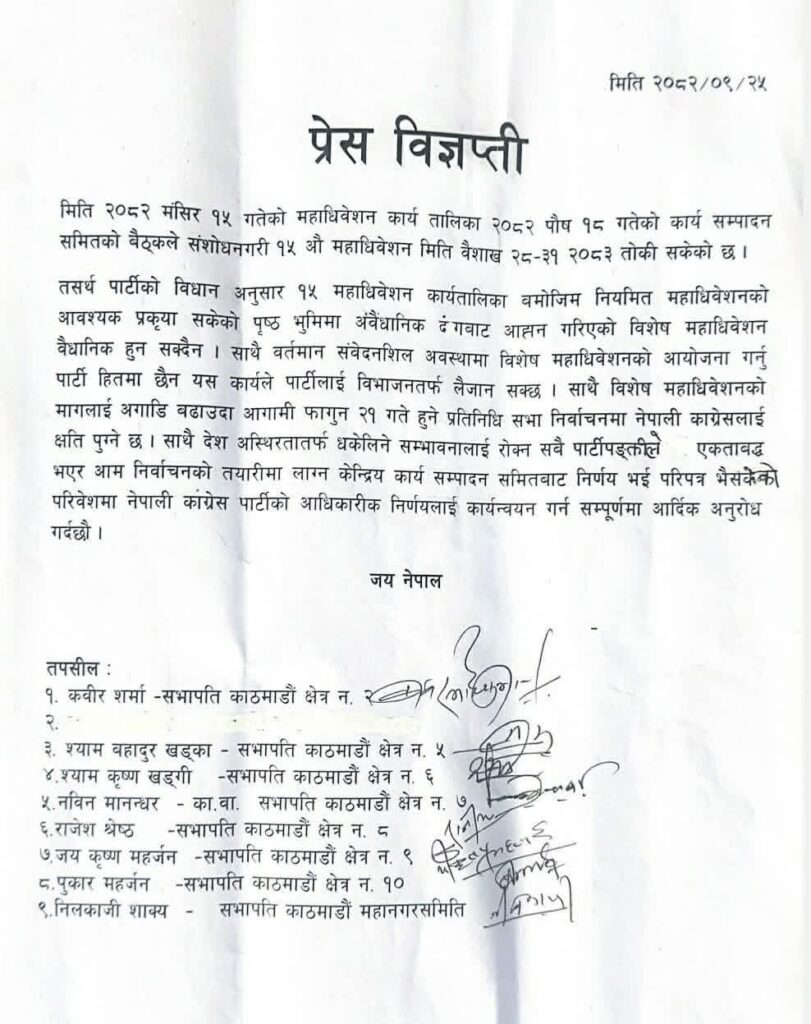 मिति २०८२/०९/२५
प्रेस विज्ञप्ती
मिति २०८२ मंसिर १५ गतेको महाधिवेशन कार्य तालिका २०८२ पौष १८ गतेको कार्य सम्पादन
समितको बैठ्कले संशोधनगरी १५ औ महाधिवेशन मिति वैशाख २८-३१ २०८३ तोकी सकेको छ ।
तसर्थ पार्टीको विधान अनुसार १५ महाधिवेशन कार्यतालिका बमोजिम नियमित महाधिवेशनको
आवश्यक प्रकृया सकेको पृष्ठ भुमिमा अंवैंधानिक ढंगबाट आह्मन गरिएको विशेष महाधिवेशन
वैधानिक हुन सक्दैन । साथै वर्तमान संवेदनशिल अवस्थामा विशेष महाधिवेशनको आयोजना गर्नु
पार्टी हितमा छैन यस कार्यले पार्टीलाई विभाजनतर्फ लैजान सक्छ । साथै विशेष महाधिवेशनको
मागलाई अगाडि बढाउदा आगामी फागुन २१ गते हुने प्रतिनिधि सभा निर्वाचनमा नेपाली काग्रेसलाई
क्षति पुग्ने छ । साथै देश अस्थिरतातर्फ धकेलिने सम्भावनालाई रोक्न सबै पार्टीपङ्तीले एकतावद्ध
भएर आम निर्वाचनको तयारीमा लाग्न केन्द्रिय कार्य सम्पादन समितबाट निर्णय भई परिपत्र भैसकेको
परिवेशमा नेपाली कांग्रेस पार्टीको आधिकारीक निर्णयलाई कार्यन्वयन गर्न सम्पूर्णमा आर्दिक अनुरोध
गर्दछौ ।
जय नेपाल
तपसील :
१. कवीर शर्मा -सभापति काठमाडौं क्षेत्र न. २
२.
३. श्याम बहादुर खड्का - सभापति काठमाडौं क्षेत्र न. ५
४.श्याम कृष्ण खड्गी -सभापति काठमाडौं क्षेत्र न. ६
५.नविन मानन्धर - का.वा. सभापति काठमाडौं क्षेत्र न. ७
६.राजेश श्रेष्ठ -सभापति काठमाडौं क्षेत्र न. ८
७.जय कृष्ण महर्जन -सभापति काठमाडौं क्षेत्र न. ९
८.पुकार महर्जन -सभापति काठमाडौं क्षेत्र न. १०
९.निलकाजी शाक्य - सभापति काठमाडौं महानगरसमिति